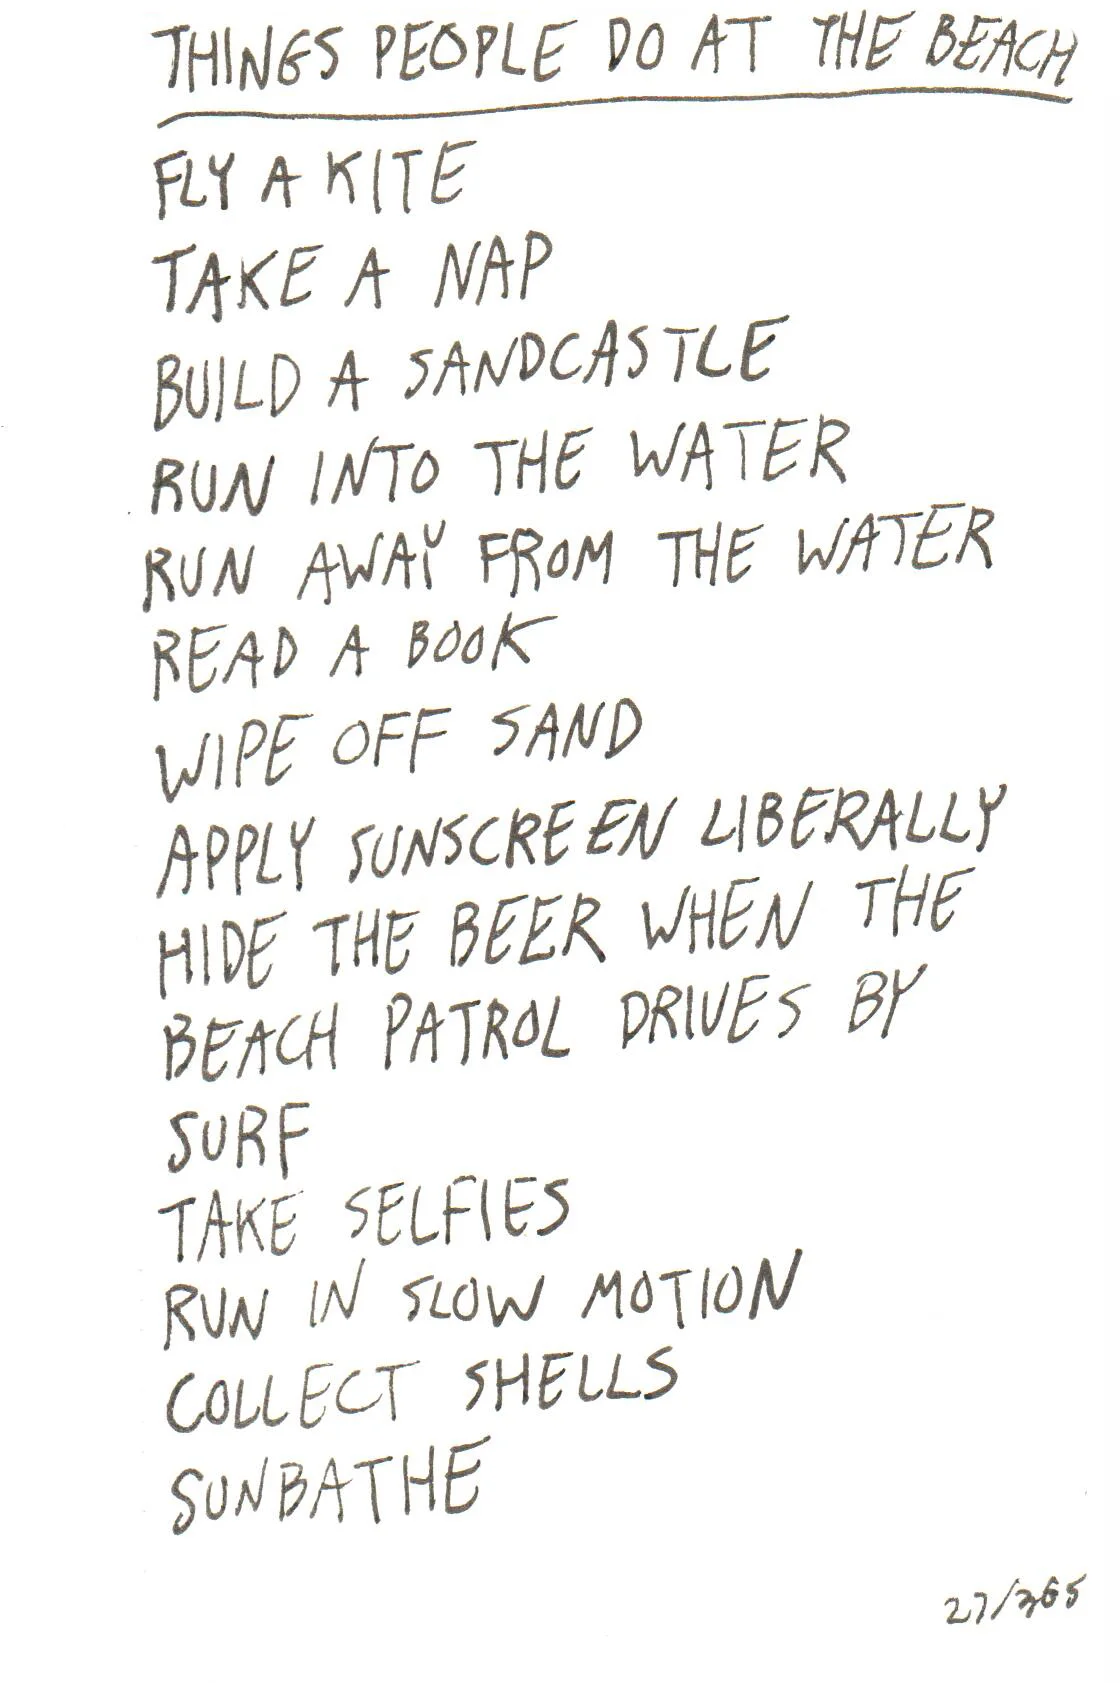 THINGS PEOPLE DO AT THE BEACH
FLY A KITE
TAKE A NAP
BUILD A SANDCASTLE
RUN INTO THE WATER
RUN AWAY FROM THE WATER
READ A BOOK
WIPE OFF SAND
APPLY SUNSCREEN LIBERALLY
HIDE THE BEER WHEN THE
BEACH PATROL DRIVES BY
SURF
TAKE SELFIES
RUN IN SLOW MOTION
COLLECT SHELLS
SUNBATHE
27/365